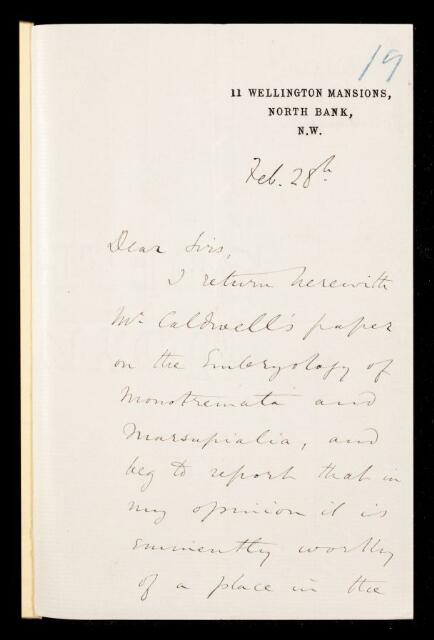 19
11 WELLINGTON MANSIONS,
NORTH BANK,
N.W.
Feb. 28th
Dear Sirs,
I return herewith
Mr Caldwell's paper
on the Embryology of
Monotremata and
Marsupialia, and
beg to report that in
my opinion it is
eminently worthy
of a place in the